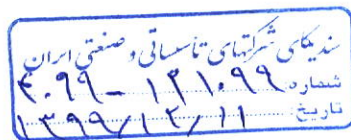 سندیکای شرکتهای تاسیساتی و صنعتی ایران
شماره: ۱۳۱۰۹۹ - ۴۰۹۹
تاریخ: ۱۳۹۹/۱۲/۱۱